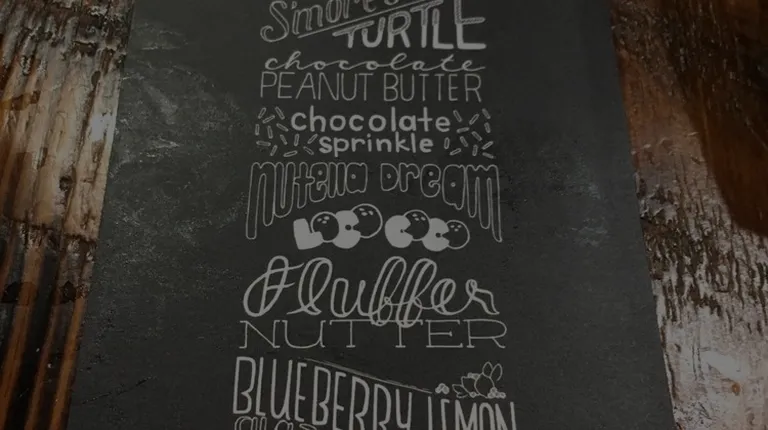 S'mores
TURTLE
chocolate
PEANUT BUTTER
chocolate
sprinkle
Nutella Dream
LOCO COCO
Fluffer
NUTTER
BLUEBERRY LEMON